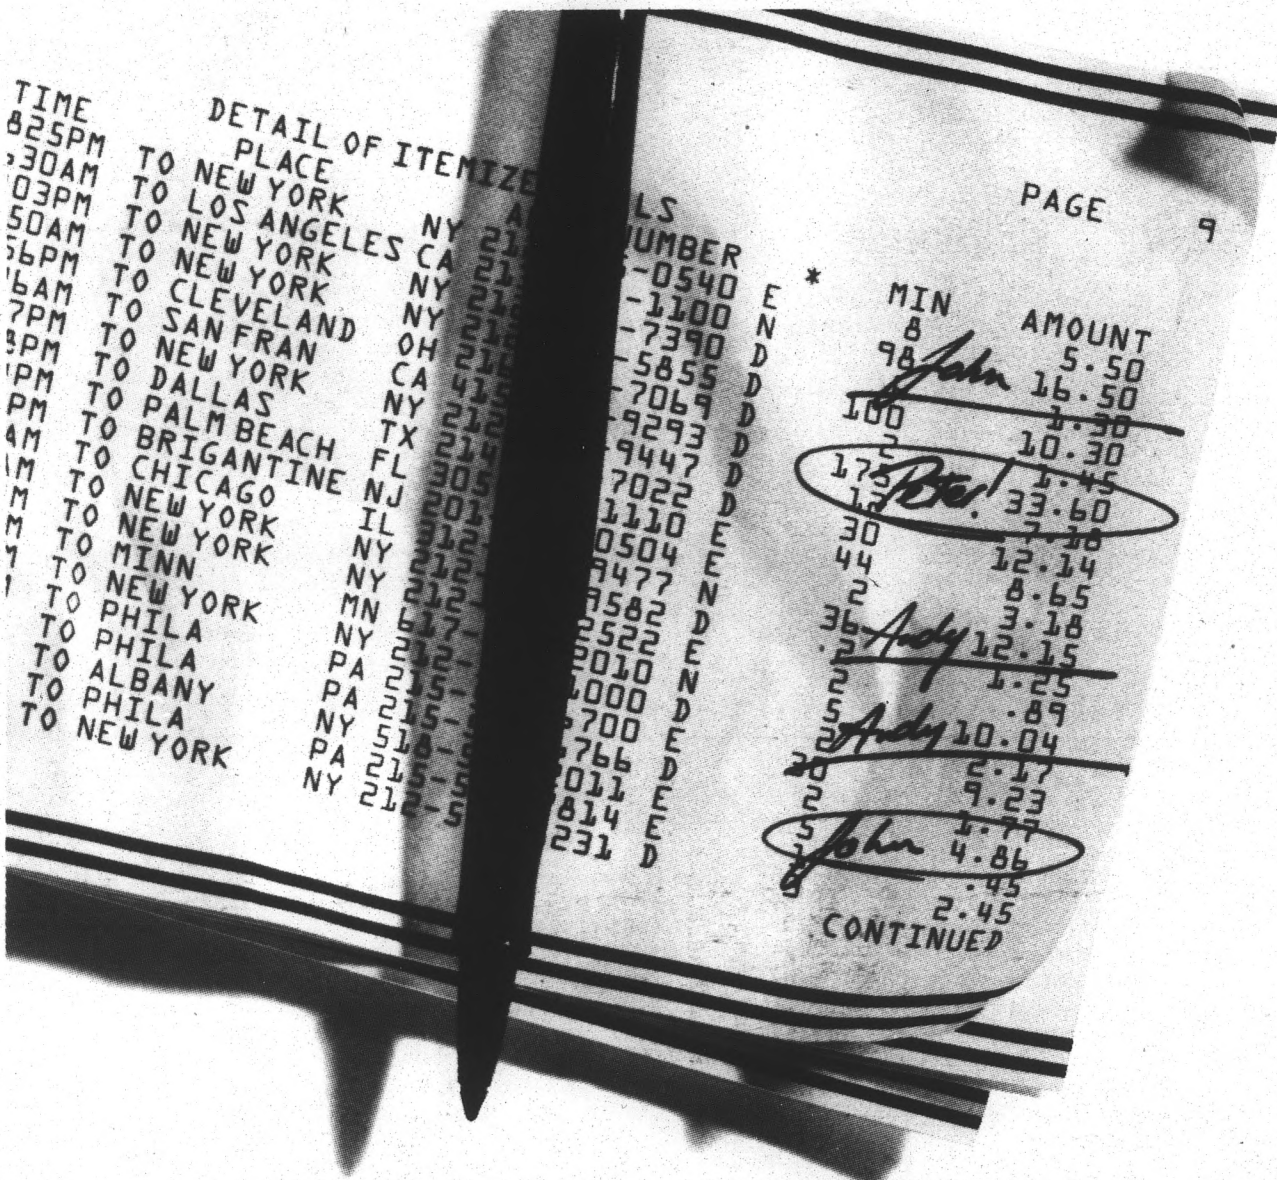 DETAIL OF ITEMIZE LS PAGE 9
TIME PLACE A NUMBER * MIN AMOUNT
825PM TO NEW YORK NY 21 -0540 E 8 5.50
30AM TO LOS ANGELES CA 21 -1100 N 98 John 16.50
03PM TO NEW YORK NY 21 -7390 D 1.30
50AM TO NEW YORK NY 21 -5855 D 100 10.30
56PM TO CLEVELAND OH 216 -7069 D 2 1.45
6AM TO SAN FRAN CA 415 -9293 D 175 Peter! 33.60
7PM TO NEW YORK NY 212 -9447 D 12 7.18
8PM TO DALLAS TX 214 7022 D 30 12.14
PM TO PALM BEACH FL 305 1110 E 44 8.65
PM TO BRIGANTINE NJ 201 0504 E 2 3.18
AM TO CHICAGO IL 312 9477 N 36 Andy 12.15
M TO NEW YORK NY 212 9582 D 2 1.25
M TO NEW YORK NY 212- 2522 E 2 .89
M TO MINN MN 617- 2010 N 5 Andy 10.04
TO NEW YORK NY 212- 1000 D 2 2.17
TO PHILA PA 215- 700 E 20 9.23
TO PHILA PA 215- 766 D 2 1.77
TO ALBANY NY 518- 011 E 5 John 4.86
TO PHILA PA 215-5 814 E .45
TO NEW YORK NY 212-5 231 D 2.45
CONTINUED